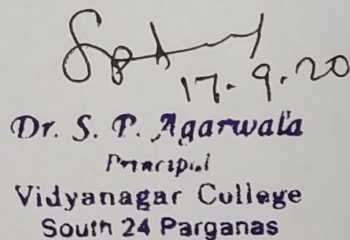 17.9.20
Dr. S. P. Agarwala
Principal
Vidyanagar College
South 24 Parganas